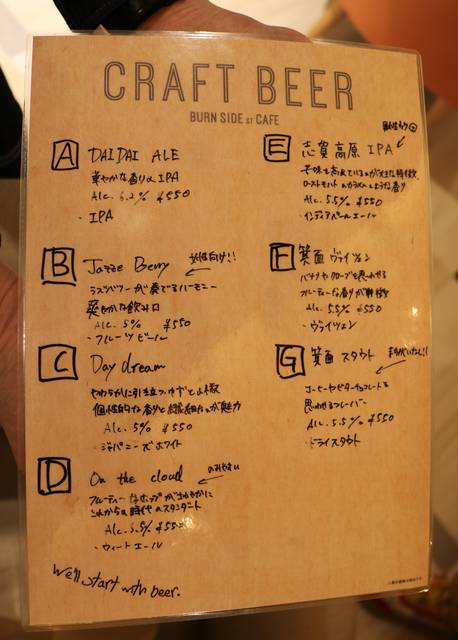 CRAFT BEER
BURN SIDE ST CAFE
A DAIDAI ALE
華やかな香りのIPA
Alc. 6.2% ¥550
・IPA
B Jazz Berry 女性向け!!
ラズベリーが奏でるハーモニー
爽やかな飲み口
Alc. 5% ¥550
・フルーツビール
C Day dream
やわらかに引き立つゆずと山椒
個性的な香りと繊細さが魅力
Alc. 5% ¥550
・ジャパニーズホワイト
D On the cloud のみやすい
フルーティーなホップがさわやかに
これからの時代のスタンダード
Alc. 5.5% ¥550
・ウィートエール
We'll start with beer.
E 志賀高原 IPA
Alc. 5.5% ¥550
・インディアペールエール
F 箕面 ヴァイツェン
バナナやクローブを思わせる
フルーティーな香りが特徴
Alc. 5.5% ¥550
・ヴァイツェン
G 箕面 スタウト まちがいない!!
コーヒーやビターチョコレートを
思わせるフレーバー
Alc. 5.5% ¥550
・ドライスタウト